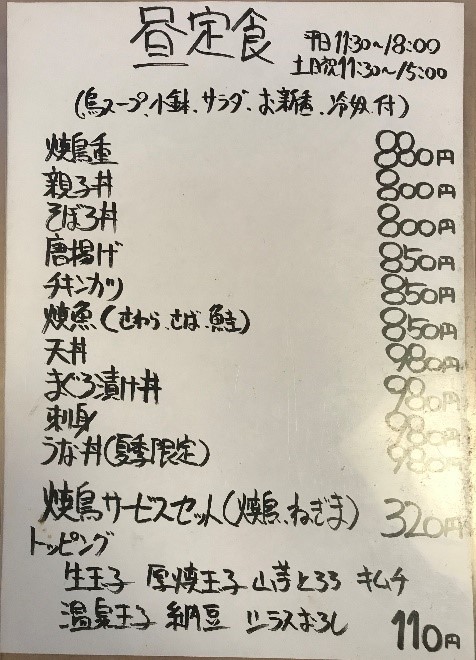 昼定食
平日11:30~18:00
土日祝11:30~15:00
(鳥スープ、小鉢、サラダ、お新香、冷奴付)
焼鳥重
親子丼 800円
そぼろ丼 800円
唐揚げ 850円
チキンカツ 850円
焼魚(さわら、さば、鮭) 850円
天丼 980円
まぐろ漬け丼 980円
刺身 980円
うな丼(夏季限定) 980円
焼鳥サービスセット(焼鳥、ねぎま) 320円
トッピング
生玉子 厚焼玉子 山芋とろろ キムチ
温泉玉子 納豆 シラスおろし 110円